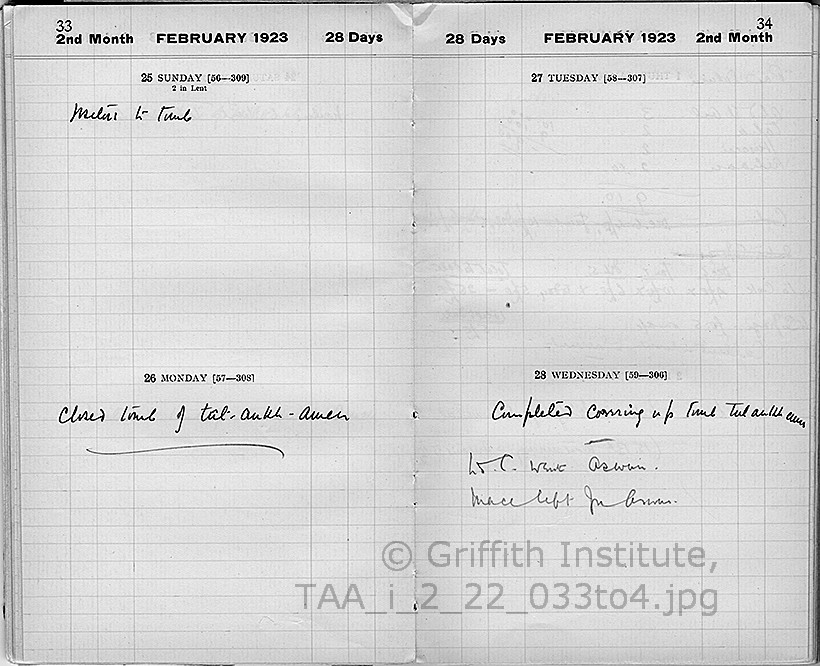 33
2nd Month FEBRUARY 1923 28 Days
25 SUNDAY [56—309]
2 in Lent
Visitors to tomb
26 MONDAY [57—308]
Closed tomb of tut-ankh-amen
34
28 Days FEBRUARY 1923 2nd Month
27 TUESDAY [58—307]
28 WEDNESDAY [59—306]
Completed covering up tomb Tutankhamen
Ld. C. went Aswan.
Mace left for Aswan.
© Griffith Institute,
TAA_i_2_22_033to4.jpg